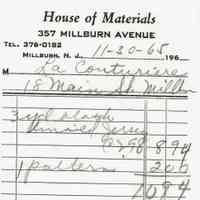 House of Materials
357 MILLBURN AVENUE
TEL. 376-0182
MILLBURN, N. J. 11-30-65 196
M La Couturiere
18 Main St. Millb
3 yd
Jersey
@ 2.98 8 94
1 pattern 2 00
10 94